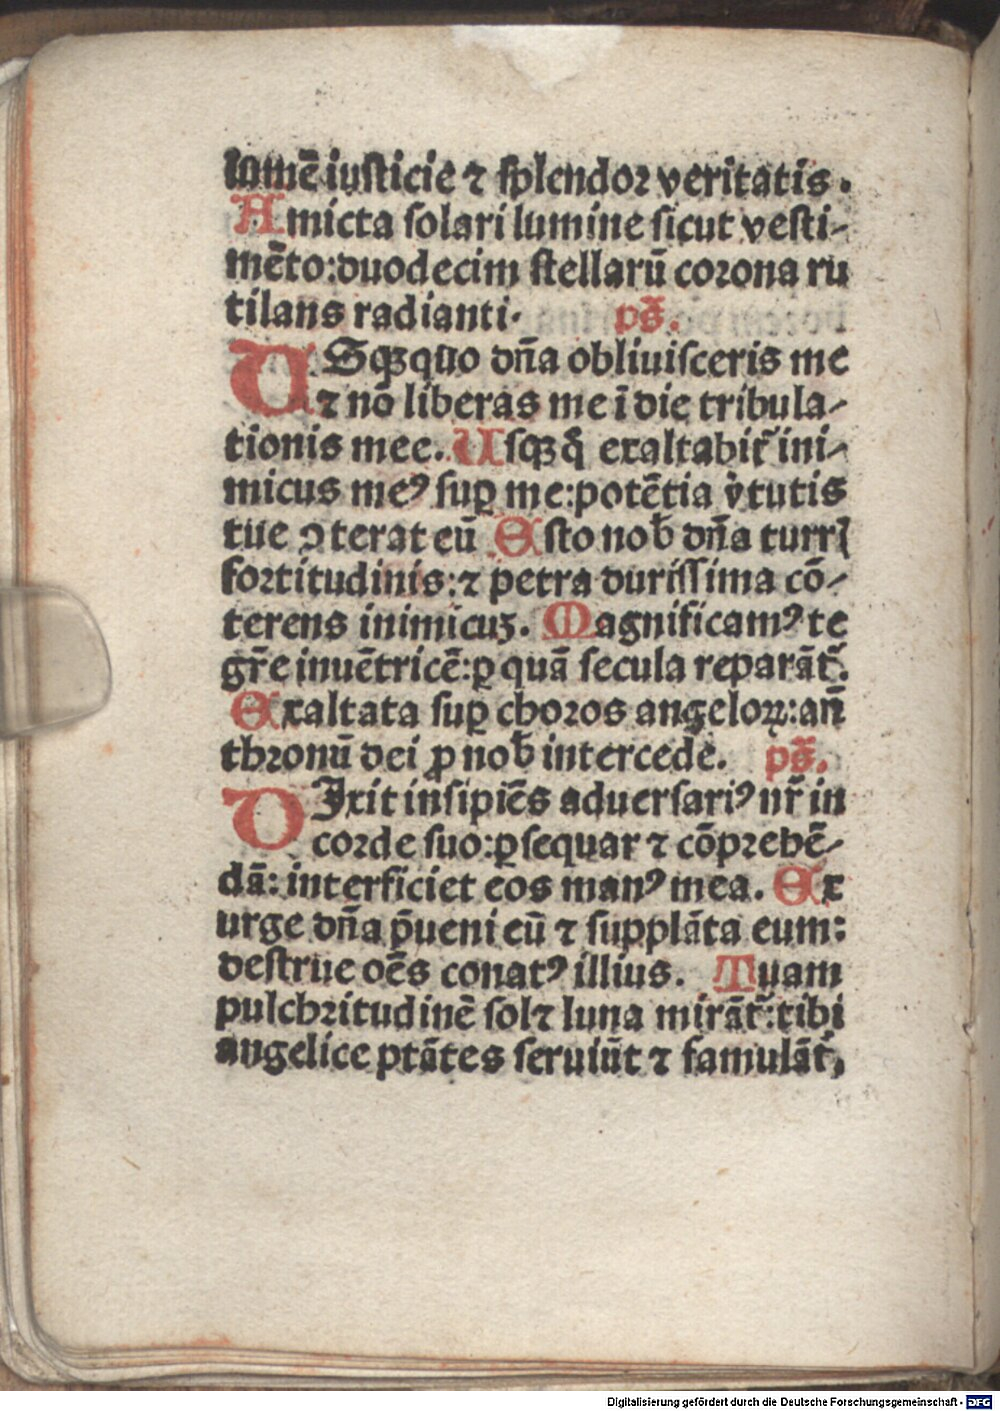 lumē iusticie ⁊ ſplendoꝛ veritatis.
Amicta ſolari lumine ſicut veſti-
mēto:duodecim ſtellarū coꝛona ru
tilans radianti. pš.
USqꝫquo dn̄a obliuiſceris me
⁊ nō liberas me ī die tribula-
tionis mee. Uſqꝫ q̊ exaltabit᷑ ini-
micus meꝰ ſuꝑ me:potētia v̓tutis
tue ↄterat eū Eſto nob̄ dn̄a turrı̄
foꝛtitudinis:⁊ petra duriſſima cō-
terens inimicuꝫ. Magnificamꝰ te
gr̄e inuētricē:ꝑ quā ſecula reparāt᷑.
Exaltata ſuꝑ choꝛos angeloꝝ:an̄
thꝛonū dei ꝓ nob̄ intercede. pš.
DJxit inſipiēs aduerſariꝰ nr̄ in
coꝛde ſuo:ꝑſequar ⁊ cōpꝛehē-
dā: interficiet eos manꝰ mea. Ex
urge dn̄a p̄ueni eū ⁊ ſupplāta eum:
deſtrue oēs conatꝰ illius. Tuam
pulchꝛitudinē ſol⁊ luna mirāt᷑:tibi
angelice ptātes ſeruiūt ⁊ famulāt᷑,
Digitalisierung gefördert durch die Deutsche Forschungsgemeinschaft - DFG